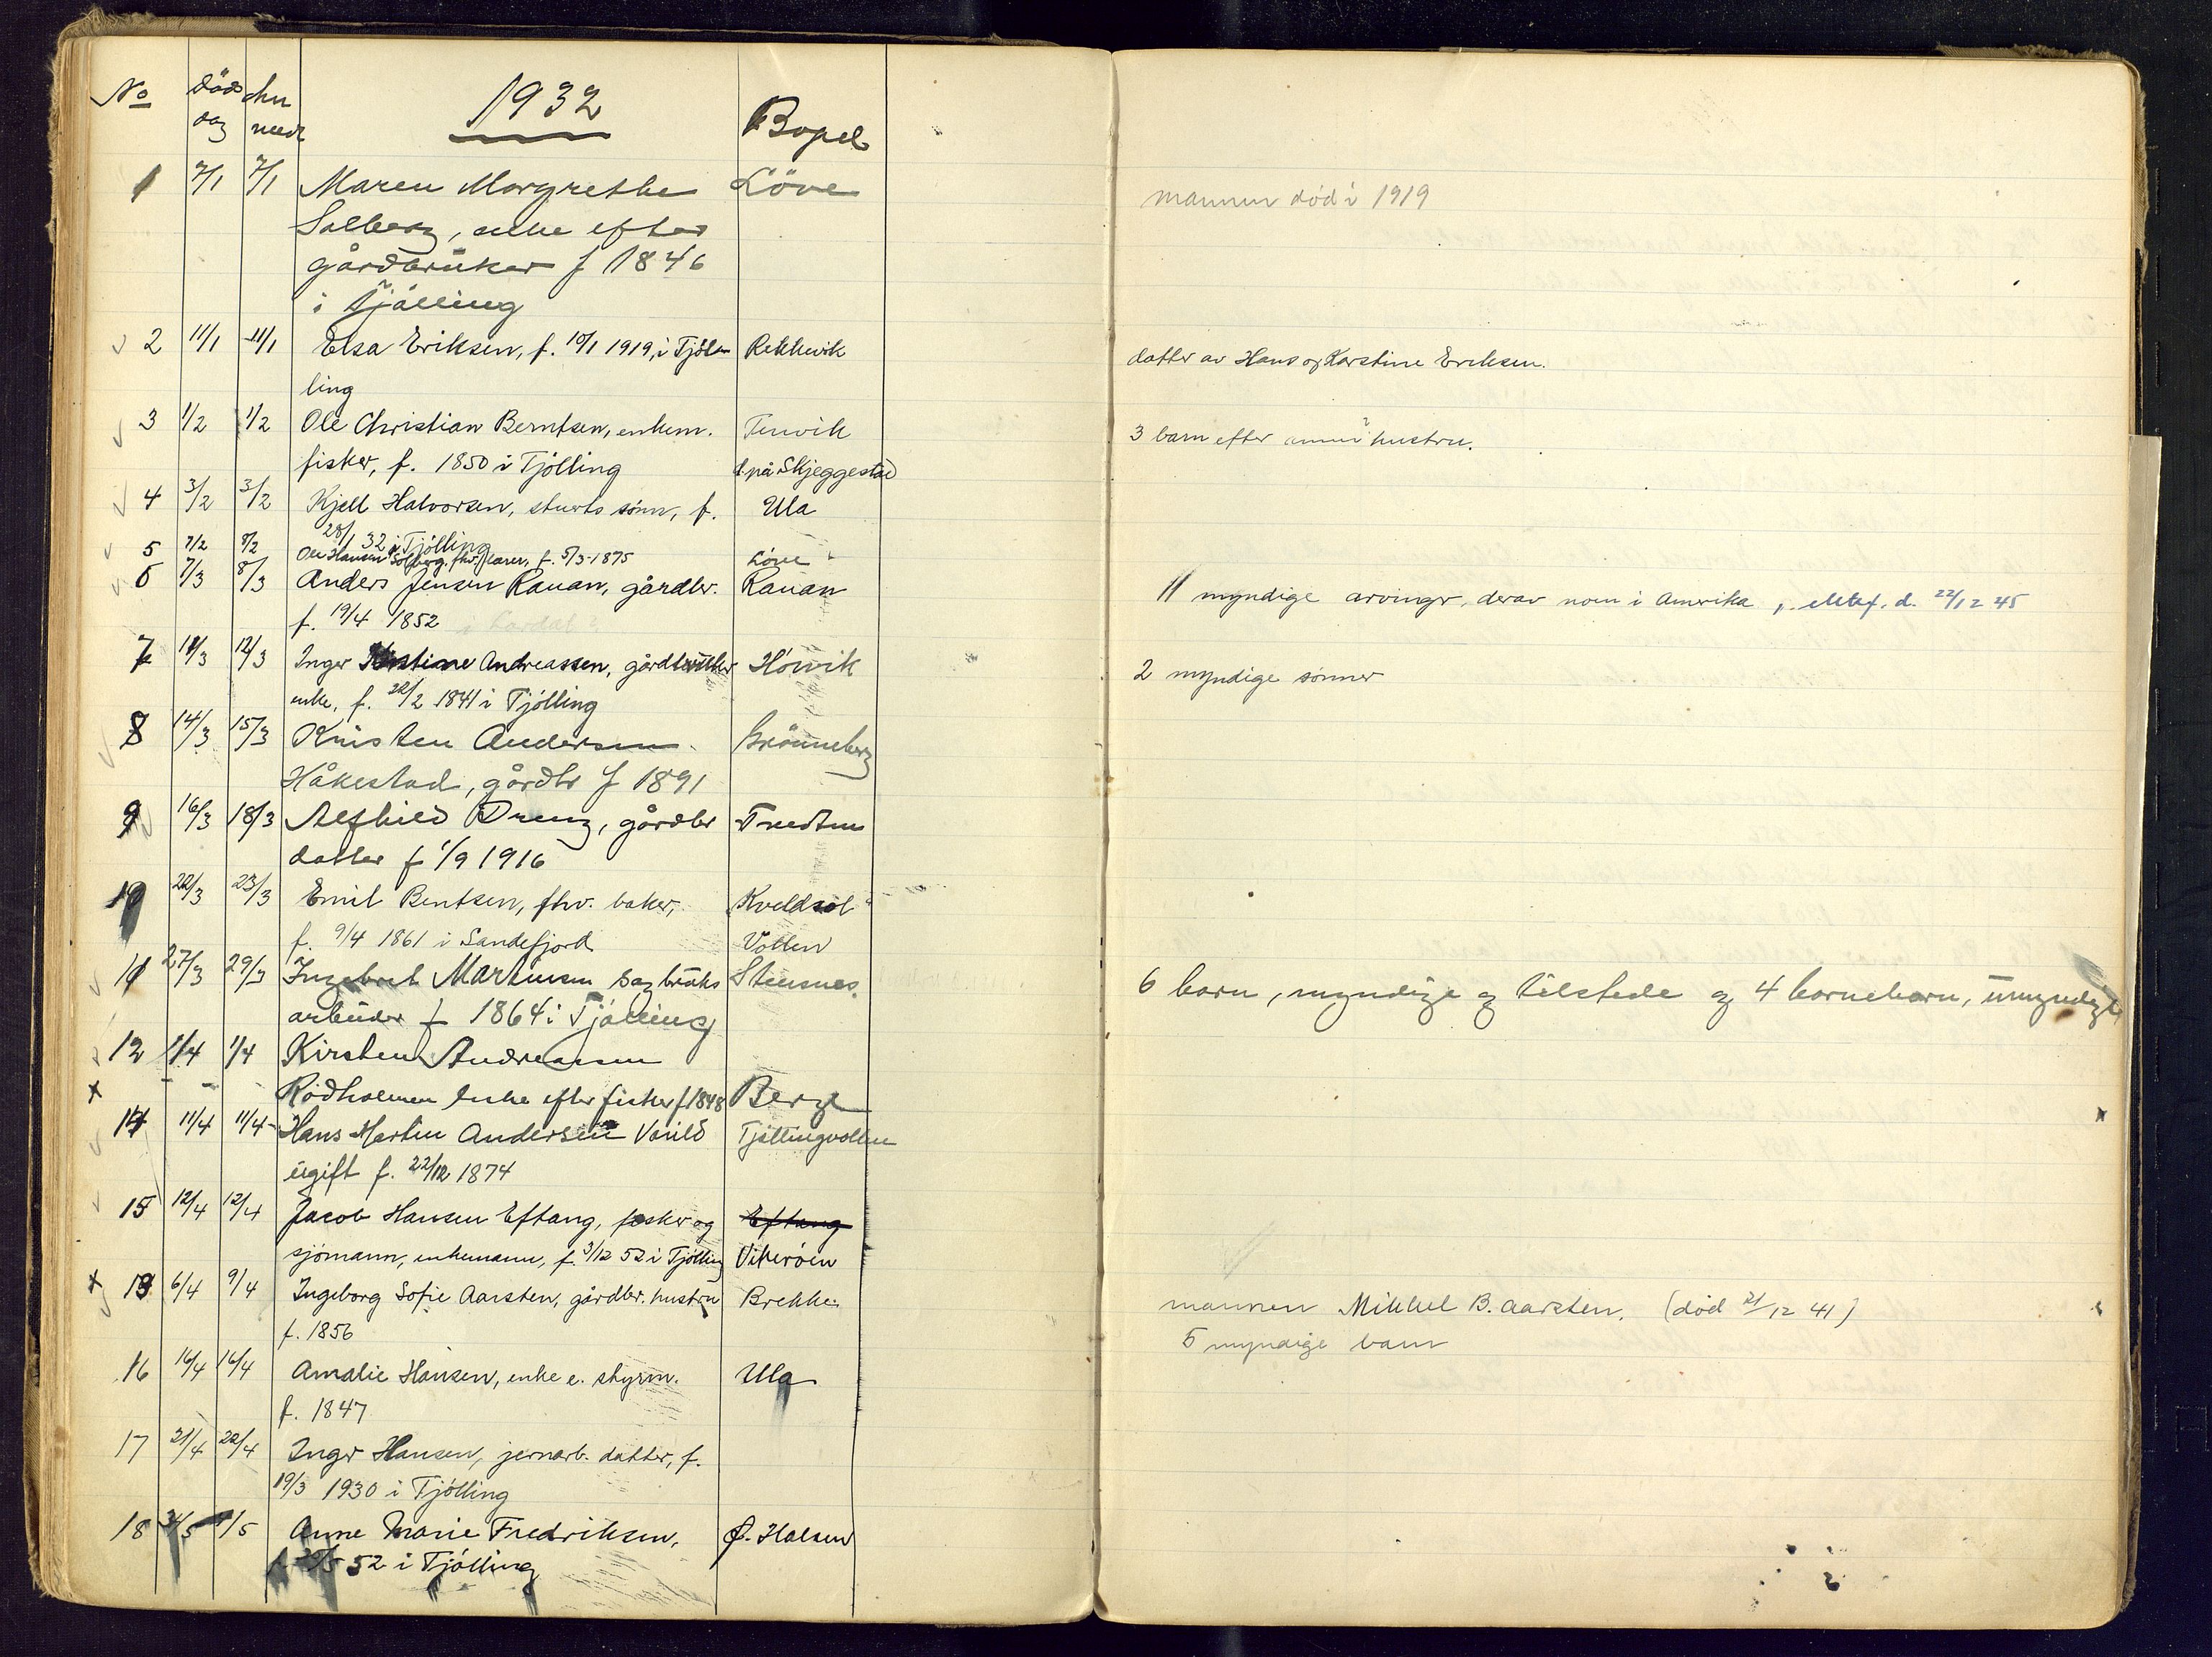 No døds dag anmeldt 1932 Bopel
1 7/1 7/1 Maren Margrethe Løve
Solberg, enke efter
gårdbruker f 1846
i Tjølling
mannen død i 1919
2 11/1 11/1 Elsa Eriksen, f. 10/1 1919, i Tjøl- Rekkevik
ling
datter av Hans og Karstine Eriksen.
3 1/2 1/2 Ole Christian Berntsen, enkem. Tenvik
fisker, f. 1850 i Tjølling d. på Skjeggestad
3 barn efter hustru.
4 3/2 3/2 Kjell Halvorsen, stuerts sønn, f. Ula
28/1 32 i Tjølling
5 7/2 8/2 Ole Hansen Solberg, fhv. f. 5/3-1875 Löve
6 7/3 8/3 Anders Jensen Rauan, gårdbr. Rauan
f. 19/4 1852 i Lardal?
11 myndige arvinger, derav noen i Amerika, ektef. d. 22/12 45
7 11/3 12/3 Inger Kirstine Andreassen, gårdbruker Høivik
enke, f. 22/2 1841 i Tjølling
2 myndige sønner
8 14/3 15/3 Kristen Andersen Grönneberg
Håkestad, gårdbr f 1891
9 16/3 18/3 Alfhild Dreng, gårdbr
datter f 1/9 1916
10 22/3 23/3 Emil Bentsen, fhv. baker, "Kveldsol"
f. 9/4 1861 i Sandefjord Vollen
11 27/3 29/3 Ingebret Martinsen sagbruks Steusnes
arbeider f 1864 i Tjølling
6 barn, myndige og tilstede og 4 barnebarn, umyndige
12 1/4 1/4 Kirsten Andreassen
x - - Rødholmen enke efter fisker f 1848 Berge
14 11/4 11/4 Hans Martin Andersen Varild Tjøllingvollen
ugift f. 22/12 1874
15 12/4 12/4 Jacob Hansen Eftang, fisker og Eftang
sjømann, enkemann, f. 3/12 52 i Tjølling Vikerøen
x 13 6/4 9/4 Ingeborg Sofie Aarsten, gårdbr. hustru Brekke
f. 1856
mannen Mikkel B. Aarsten. (død 21/12 41)
5 myndige barn
16 16/4 16/4 Amalie Hansen, enke e. styrm. Ula
f. 1847
17 21/4 22/4 Inger Hansen, jernarb. datter, f.
19/3 1930 i Tjølling
18 /5 /5 Anne Marie Fredriksen, Ø. Halsen
f. 52 i Tjølling